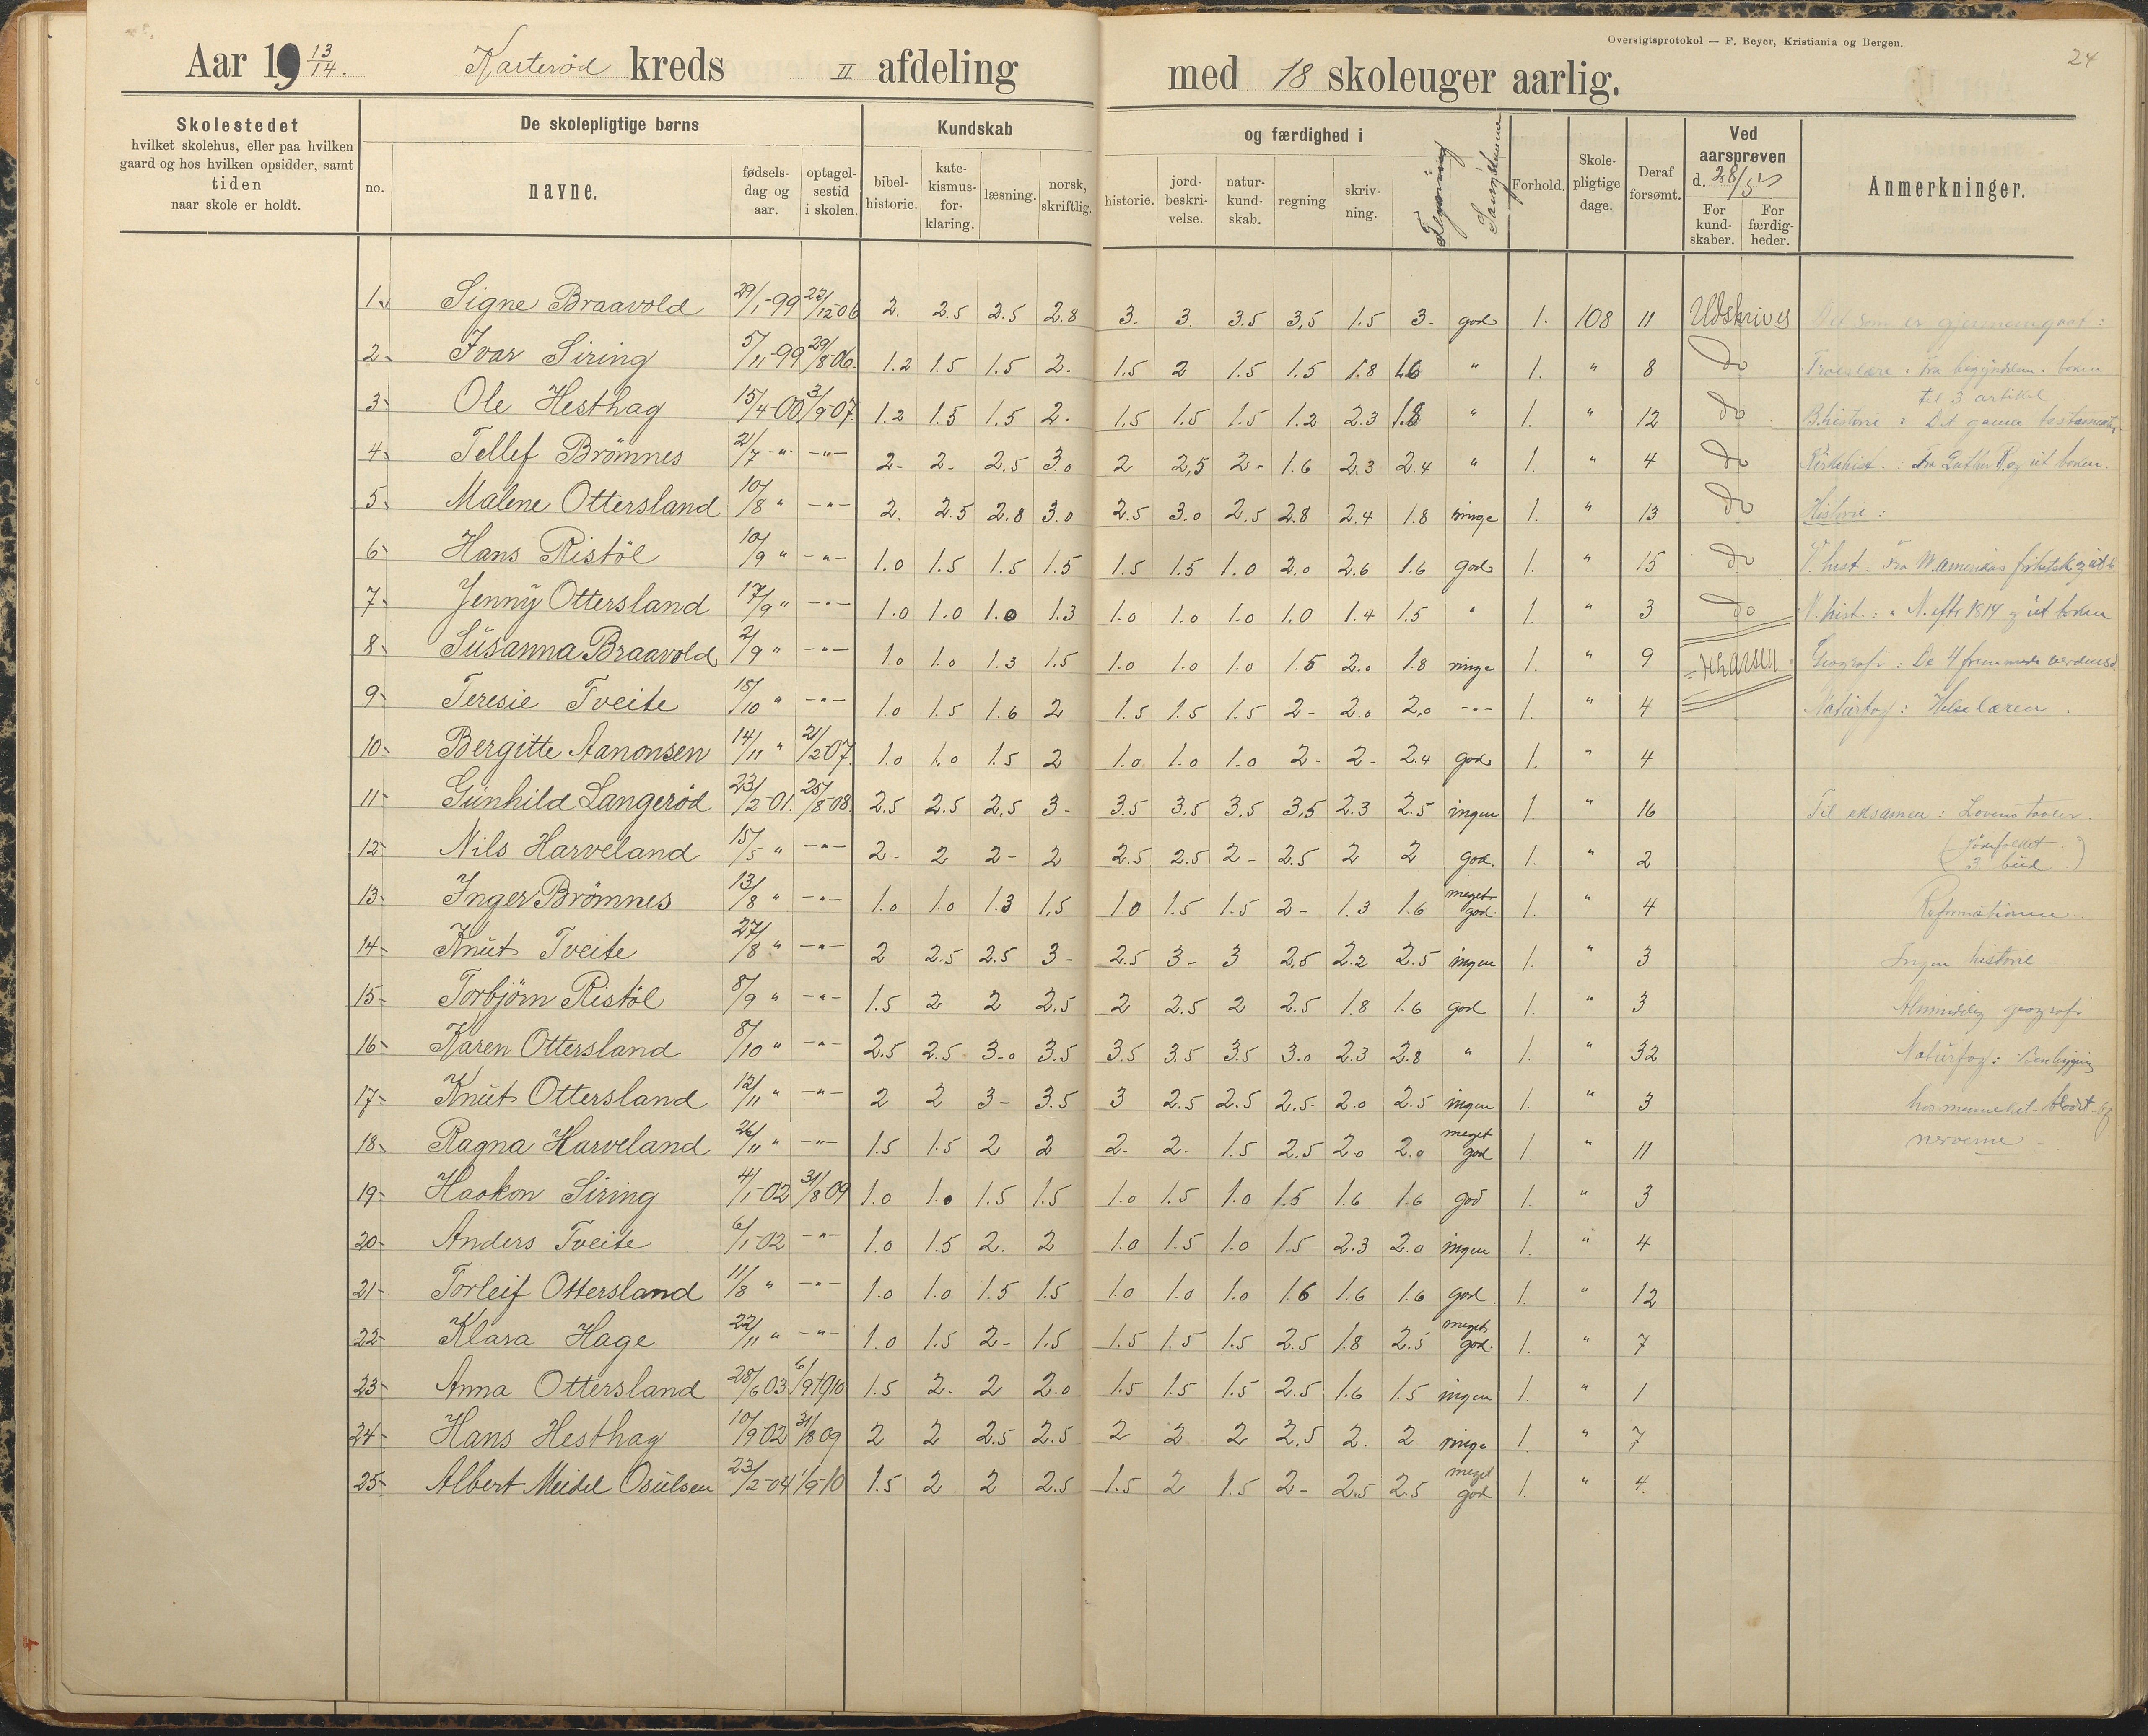 Oversigtsprotokol — F. Beyer, Kristiania og Bergen.
24
Aar 1913/14. Karterød kreds II afdeling med 18 skoleuger aarlig.
Skolestedet
hvilket skolehus, eller paa hvilken
gaard og hos hvilken opsidder, samt
tiden
naar skole er holdt.
De skolepligtige børns
no.
navne.
fødsels-
dag og
aar.
optagel-
sestid
i skolen.
Kundskab og færdighed i
bibel-
historie.
kate-
kismus-
for-
klaring.
læsning.
norsk,
skriftlig.
historie.
jord-
beskri-
velse.
natur-
kund-
skab.
regning
skriv-
ning.
Tegning
Sangstemme
Forhold.
Skole-
pligtige
dage.
Deraf
forsømt.
Ved
aarsprøven
d. 28/5
For
kund-
skaber.
For
færdig-
heder.
Anmerkninger.
1. Signe Braavold 29/1-99 22/12-06 2. 2.5 2.5 2.8 3- 3. 3.5 3,5 1.5 3- god 1. 108 11 Udskrives
2- Ivar Siring 5/11-99 29/8-06. 1.2 1.5 1.5 2. 1.5 2 1.5 1.5 1.8 1.6 " 1. " 8 do
3- Ole Hesthag 15/4-00 3/9-07. 1.2 1.5 1.5 2. 1.5 1.5 1.5 1.2 2.3 1.8 " 1. " 12 do
4- Tellef Brømnes 2/7 -"- -"- 2- 2- 2.5 3.0 2 2,5 2- 1.6 2.3 2.4 " 1. " 4 do
5- Malene Ottersland 10/8 " -"- 2. 2.5 2.8 3.0 2.5 3.0 2.5 2.8 2.4 1.8 ringe 1. " 13 do
6- Hans Ristöl 10/9 " -"- 1.0 1.5 1.5 1.5 1.5 1.5 1.0 2.0 2.6 1.6 god 1. " 15 do
7- Jenny Ottersland 17/9 " -"- 1.0 1.0 1.0 1.3 1.0 1.0 1.0 1.0 1.4 1.5 " 1. " 3 do
8- Susanna Braavold 2/9 " -"- 1.0 1.0 1.3 1.5 1.0 1.0 1.0 1.5 2.0 1.8 ringe 1. " 9
9- Teresie Tveite 18/10 " -"- 1.0 1.5 1.6 2 1.5 1.5 1.5 2- 2.0 2,0 -"- 1. " 4
10- Bergitte Aanonsen 14/11 " 21/2-07. 1.0 1.0 1.5 2 1.0 1.0 1.0 2- 2- 2.4 god 1. " 4
11- Gunhild Langerød 23/2-01. 25/8-08. 2.5 2.5 2,5 3- 3.5 3.5 3.5 3,5 2.3 2.5 ingen 1. " 16
12- Nils Harveland 15/5 " -"- 2- 2 2- 2 2.5 2.5 2- 2.5 2 2 god. 1. " 2
13- Inger Brömnes 13/8 " -"- 1.0 1.0 1.3 1,5 1.0 1.5 1.5 2- 1.3 1.6 meget god. 1. " 4
14- Knut Tveite 27/8 " -"- 2 2.5 2.5 3- 2.5 3- 3 2,5 2.2 2.5 ingen 1. " 3
15- Torbjörn Ristöl 8/9 " -"- 1.5 2 2 2.5 2 2.5 2 2.5 1.8 1.6 god 1. " 3
16- Karen Ottersland 8/10 " -"- 2.5 2.5 3-0 3.5 3.5 3.5 3.5 3.0 2.3 2.8 " 1. " 32
17- Knut Ottersland 12/11 " -"- 2 2 3- 3.5 3 2.5 2.5 2.5- 2.0 2.5 ingen 1. " 3
18- Ragna Harveland 26/11 " -"- 1.5 1.5 2 2 2- 2- 1.5 2.5 2.0 2.0 meget god 1. " 11
19- Haakon Siring 4/1-02 31/8-09 1.0 1.0 1.5 1.5 1.0 1.5 1.0 1.5 1.6 1.6 god 1. " 3
20- Anders Tveite 6/1-02 -"- 1.0 1.5 2. 2 1.0 1.5 1.0 1.5 2.3 2.0 ingen 1. " 4
21- Torleif Ottersland 11/8 " -"- 1.0 1.0 1.5 1.5 1.0 1.0 1.0 1.6 1.6 1.6 god. 1. " 12
22- Klara Hage 22/11 " -"- 1.0 1.5 2- 1.5 1.5 1.5 1.5 2.5 1.8 2.5 meget god. 1. " 7
23- Anna Ottersland 28/6 03 6/9-1910 1.5 2- 2 2.0 1.5 1.5 1.5 2.5 1.6 1.5 ingen 1. " 1
24- Hans Hesthag 10/9 02 31/8 09 2 2 2.5 2.5 2 2 2 2,5 2. 2 ringe 1. " 7
25- Albert Meidel Osulsen 23/2-04 1/9-10 1.5 2 2 2.5 1.5 2 1.5 2- 2.5 2.5 meget god 1. " 4.
Det som er gjennemgaat:
Troeslære: Fra begyndelsen
til 3. artikkel
B.historie: Det gamle testamente.
Kirkehist.: Fra Luther og ut boken.
Historie:
N. hist.: " N. efter 1814 og ut boken
Geografi: De 4 fremmede verdensd.
Naturfag: Helselæren.
Til eksamen: Lovens tavler.
3. bud.)
Reformationen
Ingen historie
Almindelig geografi
Naturfag:
nerverne